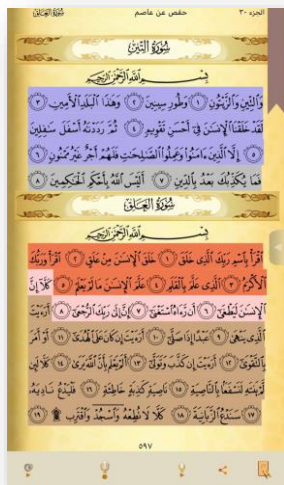 الجزء ٣٠ حفص عن عاصم سورة العلق
سُورَةُ التِّينِ
بِسْمِ اللَّهِ الرَّحْمَٰنِ الرَّحِيمِ
وَالتِّينِ وَالزَّيْتُونِ ١ وَطُورِ سِينِينَ ٢ وَهَٰذَا الْبَلَدِ الْأَمِينِ ٣
لَقَدْ خَلَقْنَا الْإِنسَٰنَ فِي أَحْسَنِ تَقْوِيمٍ ٤ ثُمَّ رَدَدْنَٰهُ أَسْفَلَ سَٰفِلِينَ
٥ إِلَّا الَّذِينَ ءَامَنُوا وَعَمِلُوا الصَّٰلِحَٰتِ فَلَهُمْ أَجْرٌ غَيْرُ مَمْنُونٍ ٦
فَمَا يُكَذِّبُكَ بَعْدُ بِالدِّينِ ٧ أَلَيْسَ اللَّهُ بِأَحْكَمِ الْحَٰكِمِينَ ٨
سُورَةُ الْعَلَقِ
بِسْمِ اللَّهِ الرَّحْمَٰنِ الرَّحِيمِ
اقْرَأْ بِاسْمِ رَبِّكَ الَّذِي خَلَقَ ١ خَلَقَ الْإِنسَٰنَ مِنْ عَلَقٍ ٢ اقْرَأْ وَرَبُّكَ
الْأَكْرَمُ ٣ الَّذِي عَلَّمَ بِالْقَلَمِ ٤ عَلَّمَ الْإِنسَٰنَ مَا لَمْ يَعْلَمْ ٥ كَلَّا إِنَّ
الْإِنسَٰنَ لَيَطْغَىٰ ٦ أَن رَّءَاهُ اسْتَغْنَىٰ ٧ إِنَّ إِلَىٰ رَبِّكَ الرُّجْعَىٰ ٨ أَرَءَيْتَ
الَّذِي يَنْهَىٰ ٩ عَبْدًا إِذَا صَلَّىٰ ١٠ أَرَءَيْتَ إِن كَانَ عَلَى الْهُدَىٰ ١١ أَوْ أَمَرَ
بِالتَّقْوَىٰ ١٢ أَرَءَيْتَ إِن كَذَّبَ وَتَوَلَّىٰ ١٣ أَلَمْ يَعْلَم بِأَنَّ اللَّهَ يَرَىٰ ١٤ كَلَّا لَئِن
لَّمْ يَنتَهِ لَنَسْفَعًا بِالنَّاصِيَةِ ١٥ نَاصِيَةٍ كَٰذِبَةٍ خَاطِئَةٍ ١٦ فَلْيَدْعُ نَادِيَهُ
١٧ سَنَدْعُ الزَّبَانِيَةَ ١٨ كَلَّا لَا تُطِعْهُ وَاسْجُدْ وَاقْتَرِب ۩ ١٩
٥٩٧